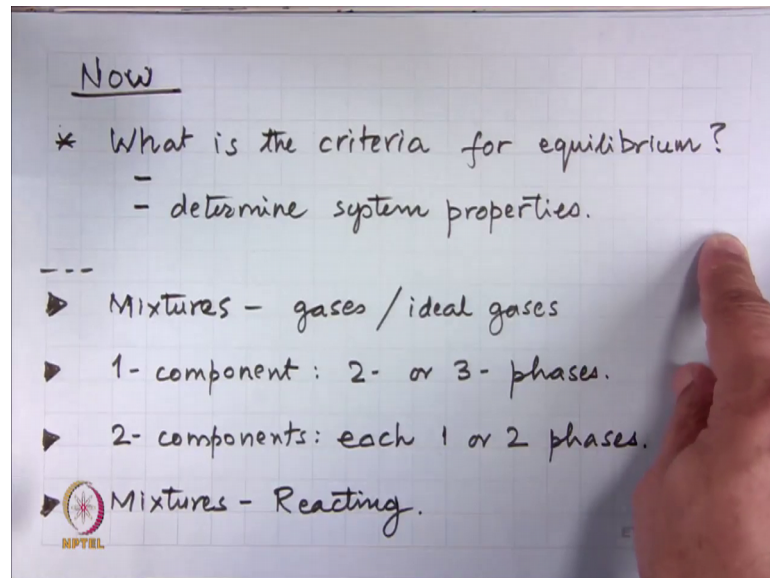 Now
* What is the criteria for equilibrium?
-
- determine system properties.
---
▶ Mixtures - gases / ideal gases
▶ 1- component : 2- or 3- phases.
▶ 2- components: each 1 or 2 phases.
▶ Mixtures - Reacting.
NPTEL